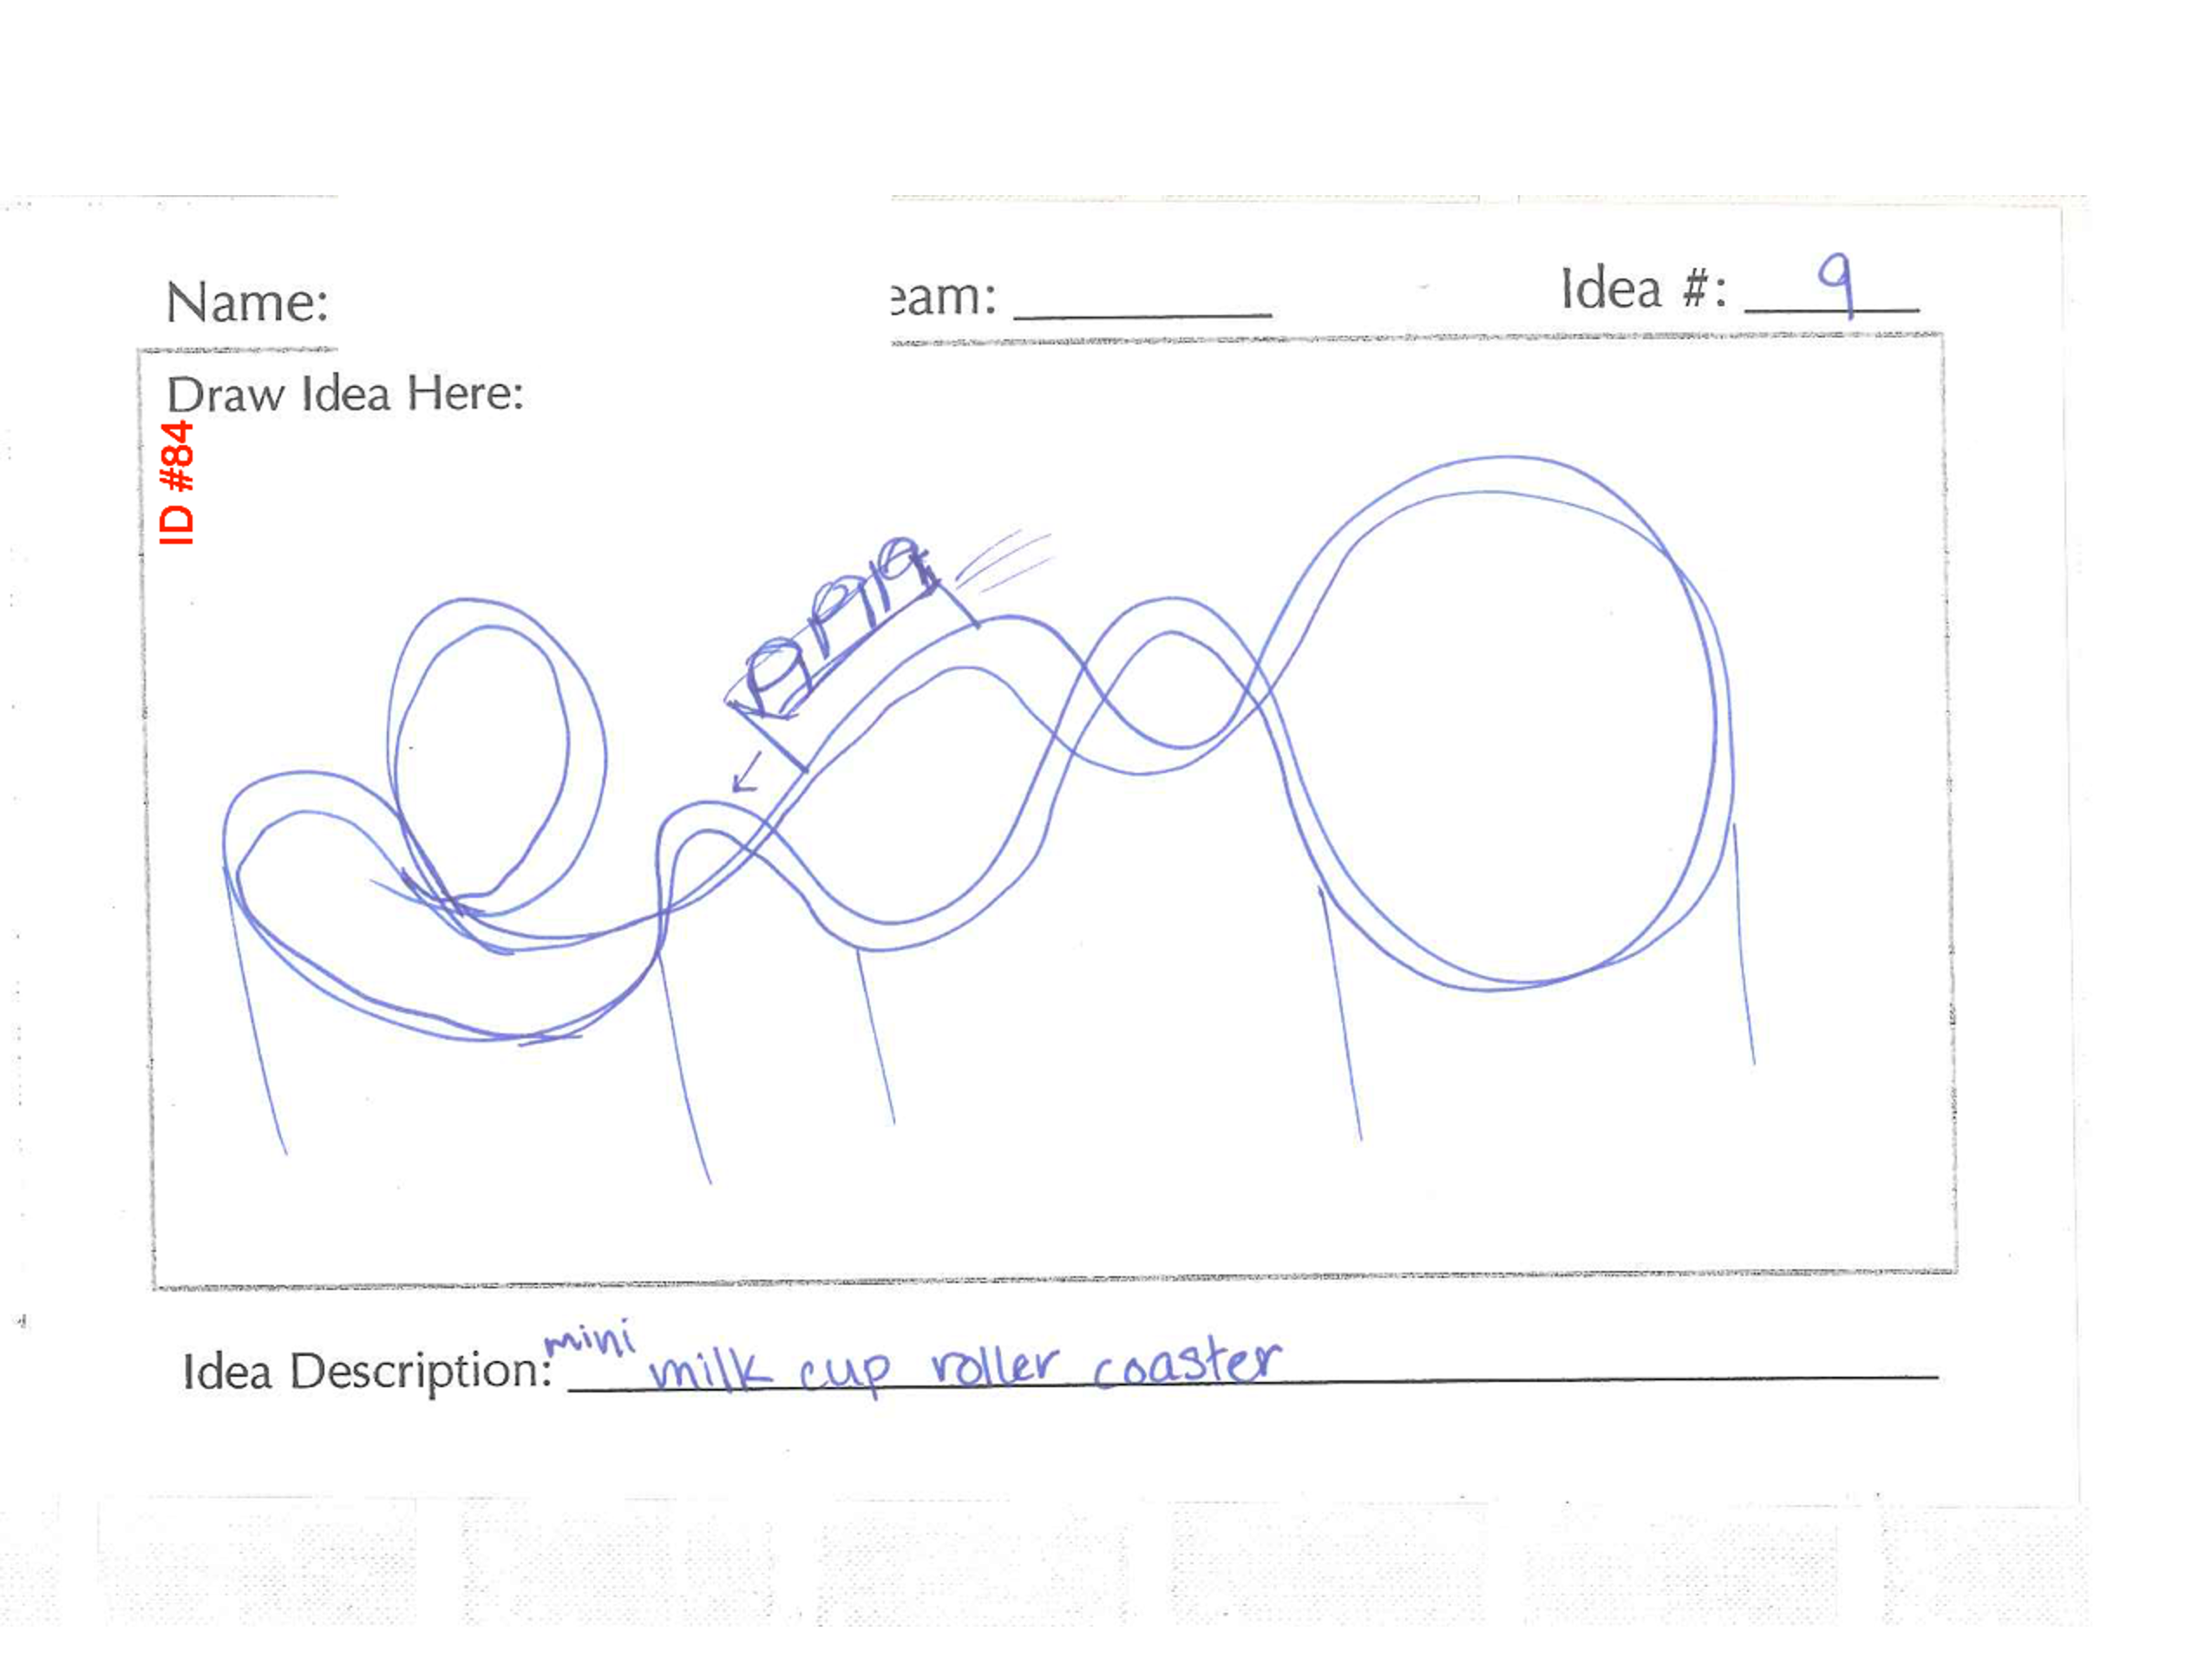 Name: eam: Idea #: 9
Draw Idea Here:
ID #84
mini
Idea Description: milk cup roller coaster